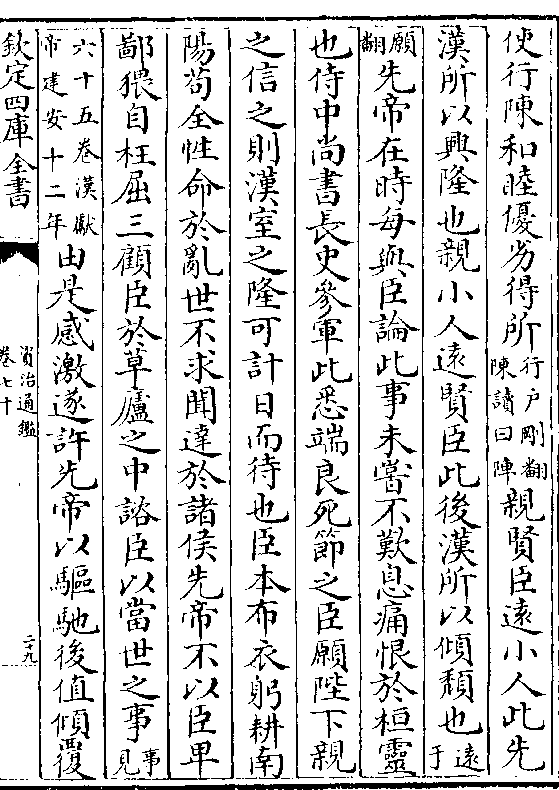 使行陳和睦優劣得所行户剛翻陳讀曰陣親賢臣遠小人此先
漢所以興隆也親小人遠賢臣此後漢所以傾頽也遠于
願翻先帝在時每與臣論此事未嘗不歎息痛恨於桓靈
也侍中尚書長史參軍此悉端良死節之臣願陛下親
之信之則漢室之隆可計日而待也臣本布衣躬耕南
陽苟全性命於亂世不求聞達於諸侯先帝不以臣卑
鄙猥自枉屈三顧臣於草廬之中諮臣以當世之事事見
六十五卷漢獻帝建安十二年由是感激遂許先帝以驅馳後值傾覆
欽定四庫全書
資治通鑑
卷七十
二十九